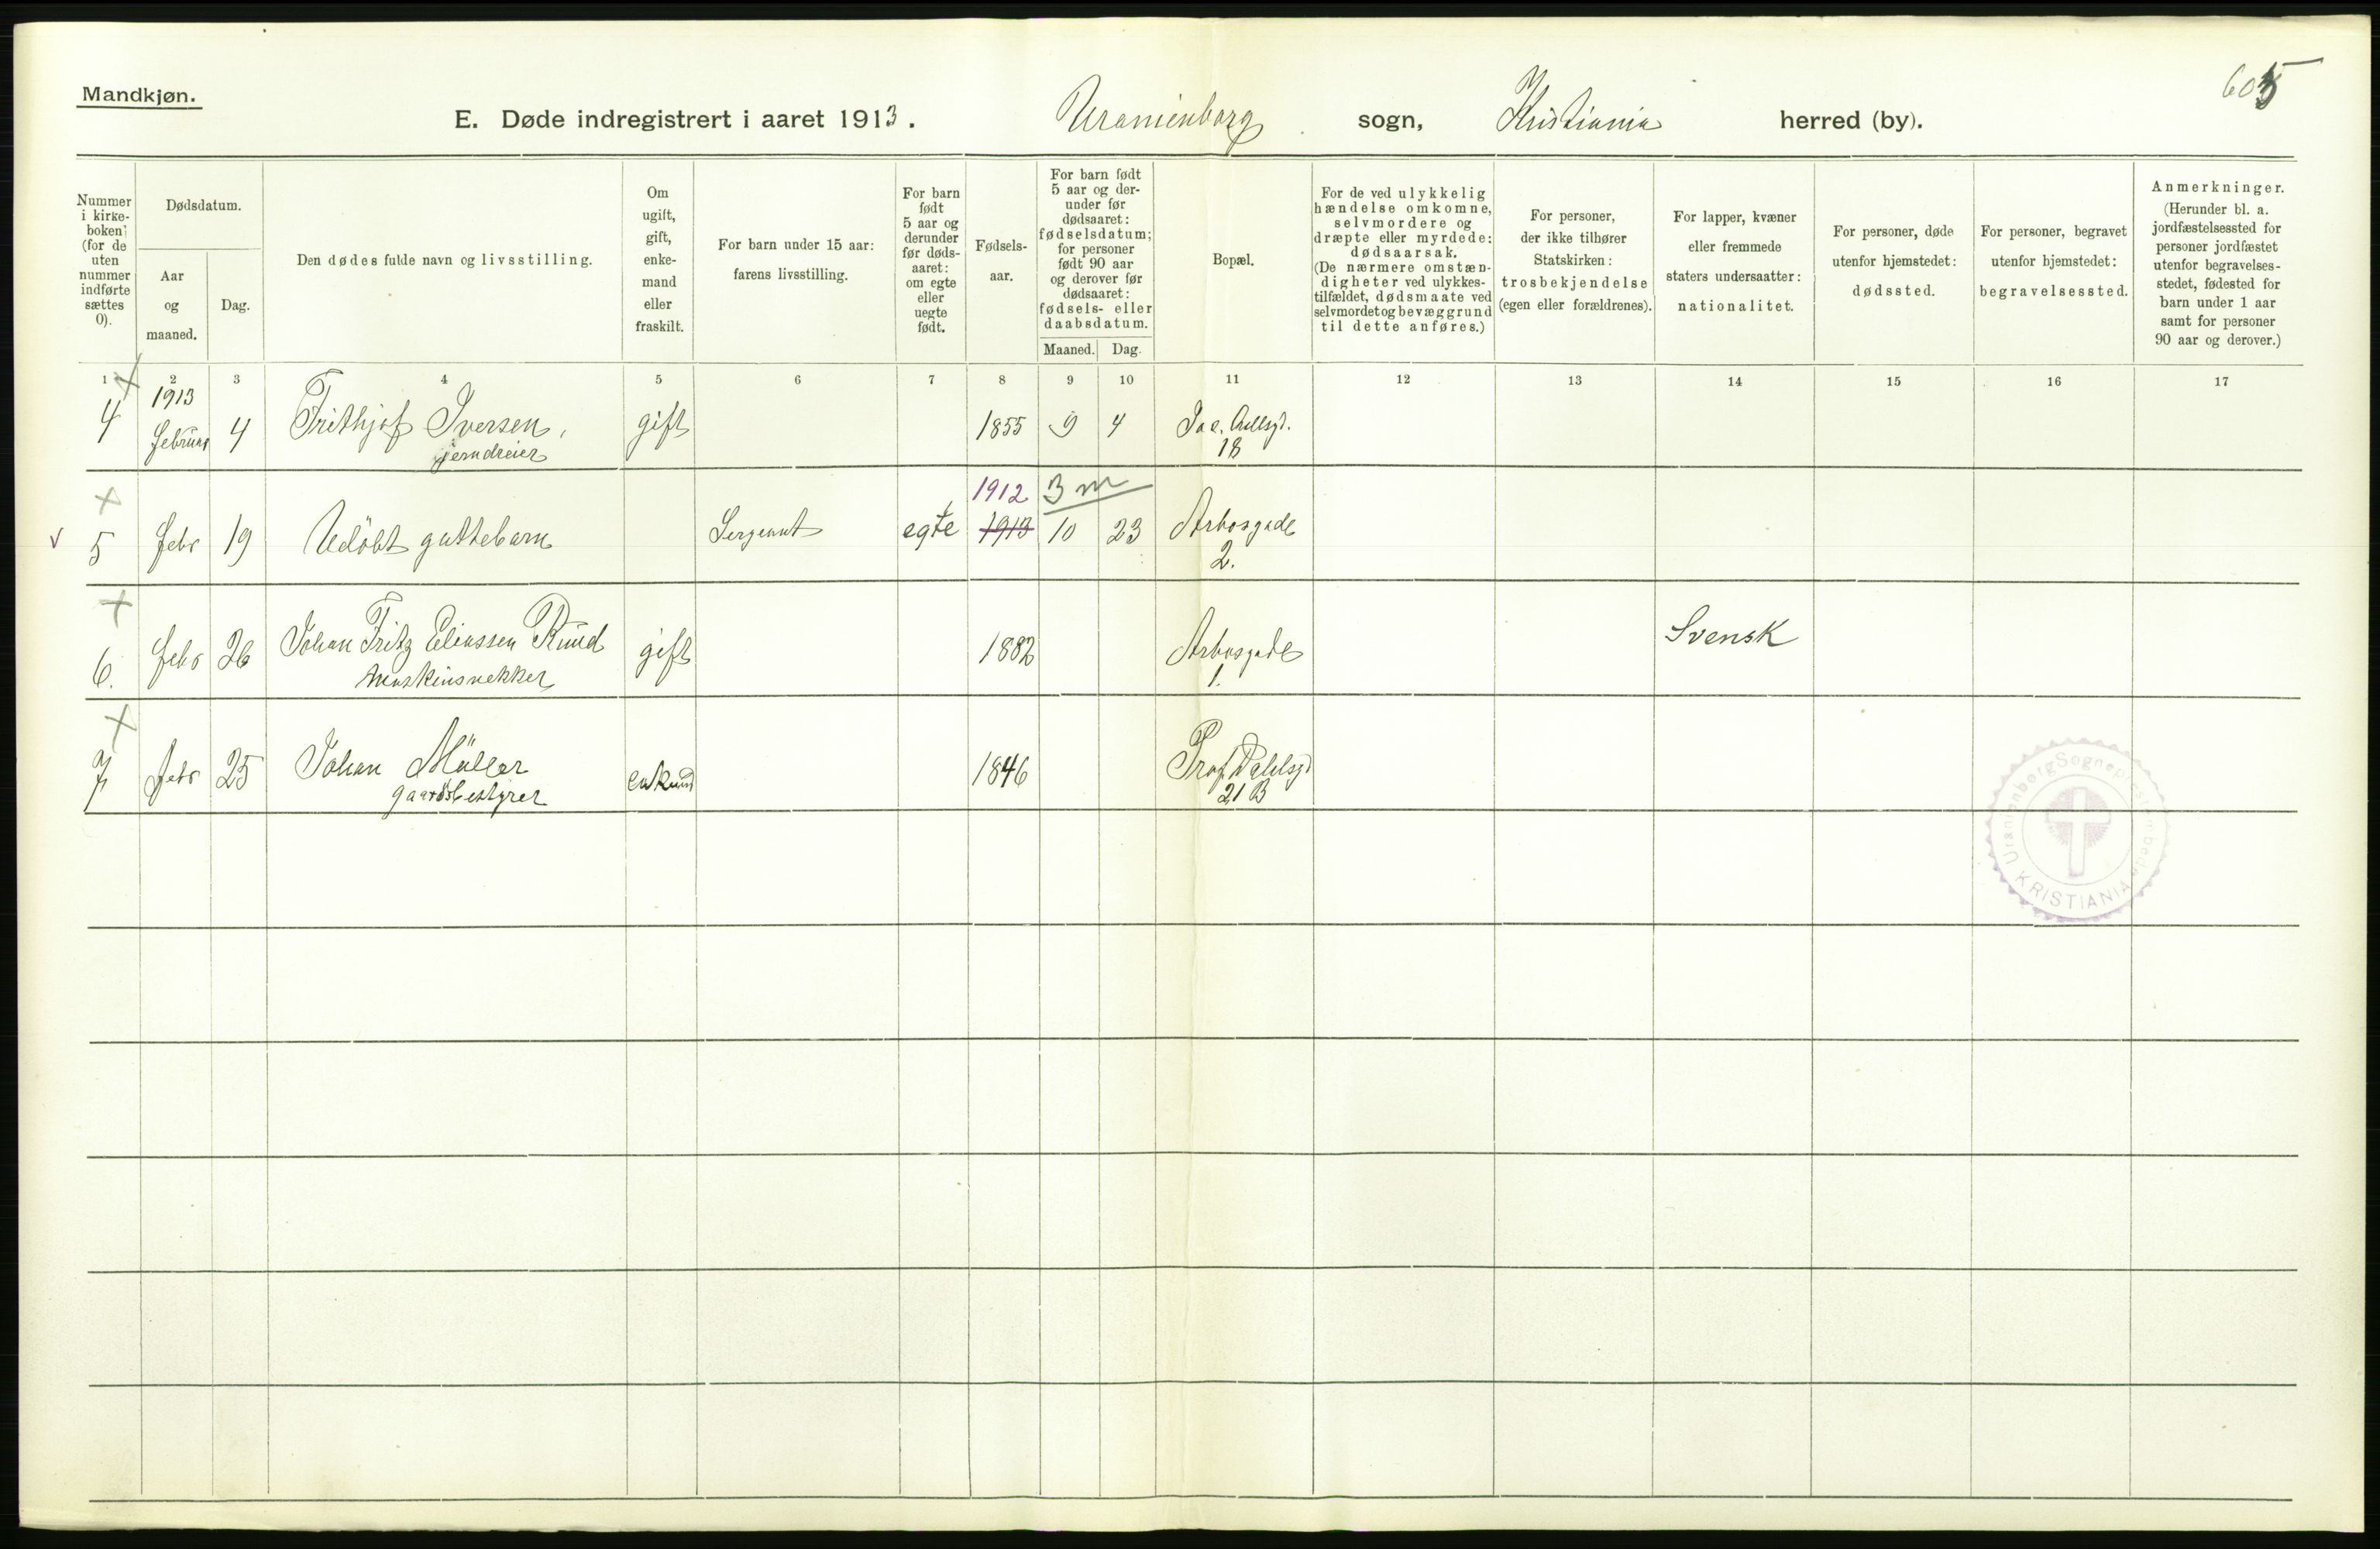 Mandkjøn.
605
E. Døde indregistrert i aaret 1913. Uranienborg sogn, Kristiania herred (by).
Nummer i kirke- boken (for de uten nummer indførte sættes 0).
Dødsdatum.
Aar og maaned.
Dag.
Den dødes fulde navn og livsstilling.
Om ugift, gift, enke- mand eller fraskilt.
For barn under 15 aar: farens livsstilling.
For barn født 5 aar og derunder før døds- aaret: om egte eller uegte født.
Fødsels- aar.
For barn født 5 aar og der- under før dødsaaret: fødselsdatum; for personer født 90 aar og derover før dødsaaret: fødsels- eller daabsdatum.
Maaned. Dag.
Bopæl.
For de ved ulykkelig hændelse omkomne, selvmordere og dræpte eller myrdede: dødsaarsak. (De nærmere omstæn- digheter ved ulykkes- tilfældet, dødsmaate ved selvmordet og bevæggrund til dette anføres.)
For personer, der ikke tilhører Statskirken: trosbekjendelse (egen eller forældrenes).
For lapper, kvæner eller fremmede staters undersaatter: nationalitet.
For personer, døde utenfor hjemstedet: dødssted.
For personer, begravet utenfor hjemstedet: begravelsessted.
Anmerkninger. (Herunder bl. a. jordfæstelsessted for personer jordfæstet utenfor begravelses- stedet, fødested for barn under 1 aar samt for personer 90 aar og derover.)
1 2 3 4 5 6 7 8 9 10 11 12 13 14 15 16 17
1913
4 Februar 4 Frithjof Iversen, gift 1855 9 4
jerndreier 18
1912 3 m
5 Febr 19 Udöbt guttebarn Sergeant egte 1913 10 23 Arbosgade
2.
6. Febr 26 Johan Fritz Eliassen Ruud gift 1882 Arbosgade Svensk
Maskinsnekker 1.
7 Febr 25 Johan Müller enkem 1846 Prof Dahlsgd
gaardsbestyrer 21 B
Uranienborg Sogneprestembede
KRISTIANIA